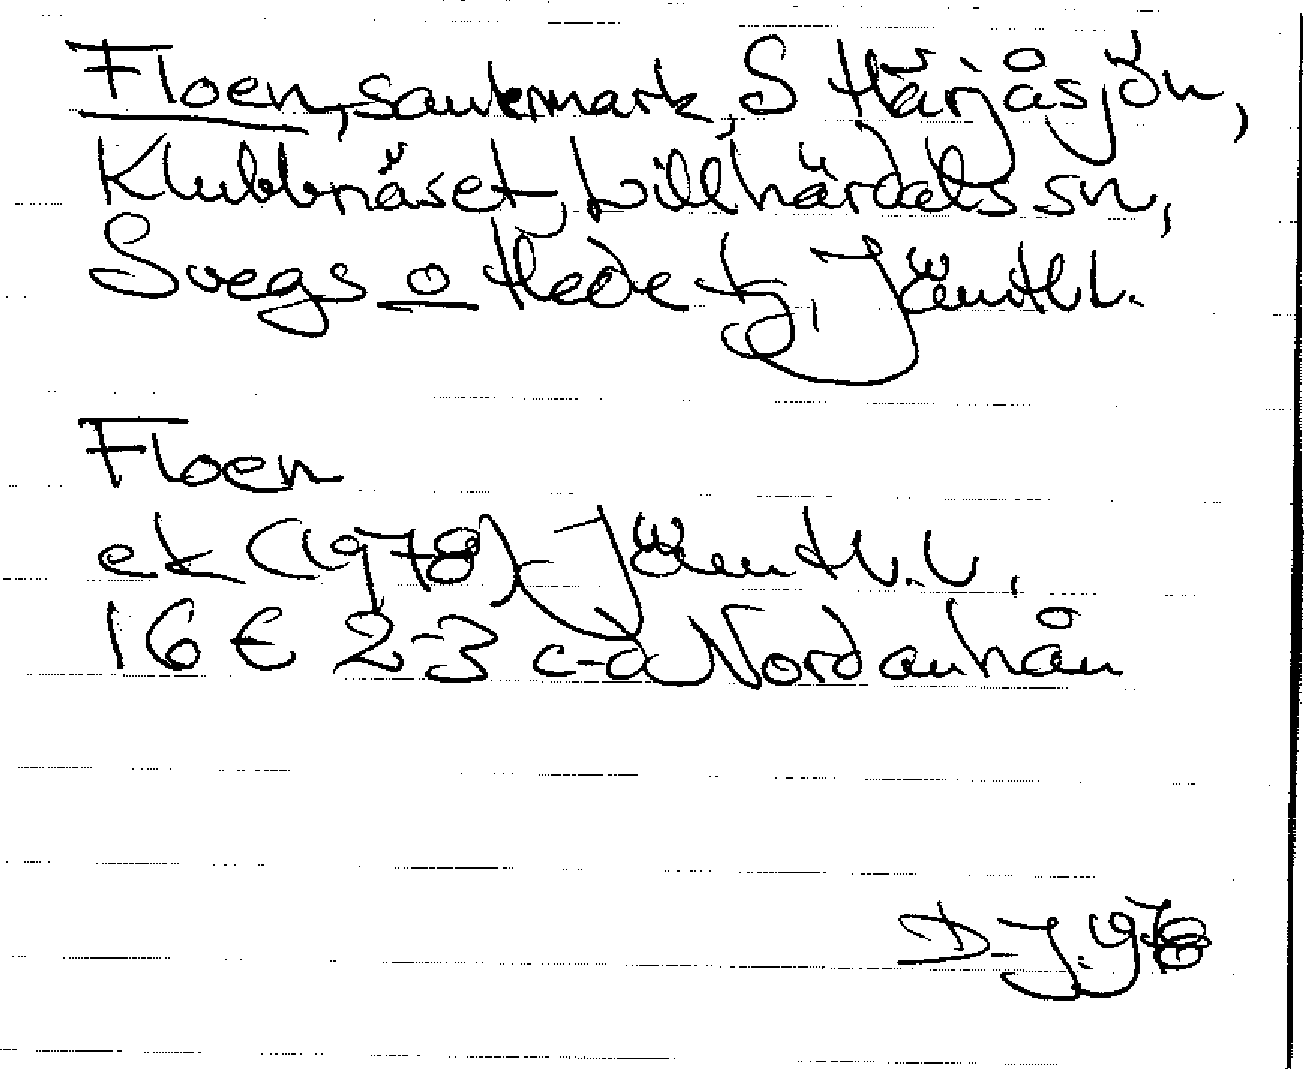 Floen, sankmark, S Härjåsjön,
Klubbnäset, Lillhärdals sn,
Svegs o Hede tg, Jämtl l.
Floen
ek (1978) Jämtl. l,
16 E 2-3 c-d Nordanhån
D-J. 1978